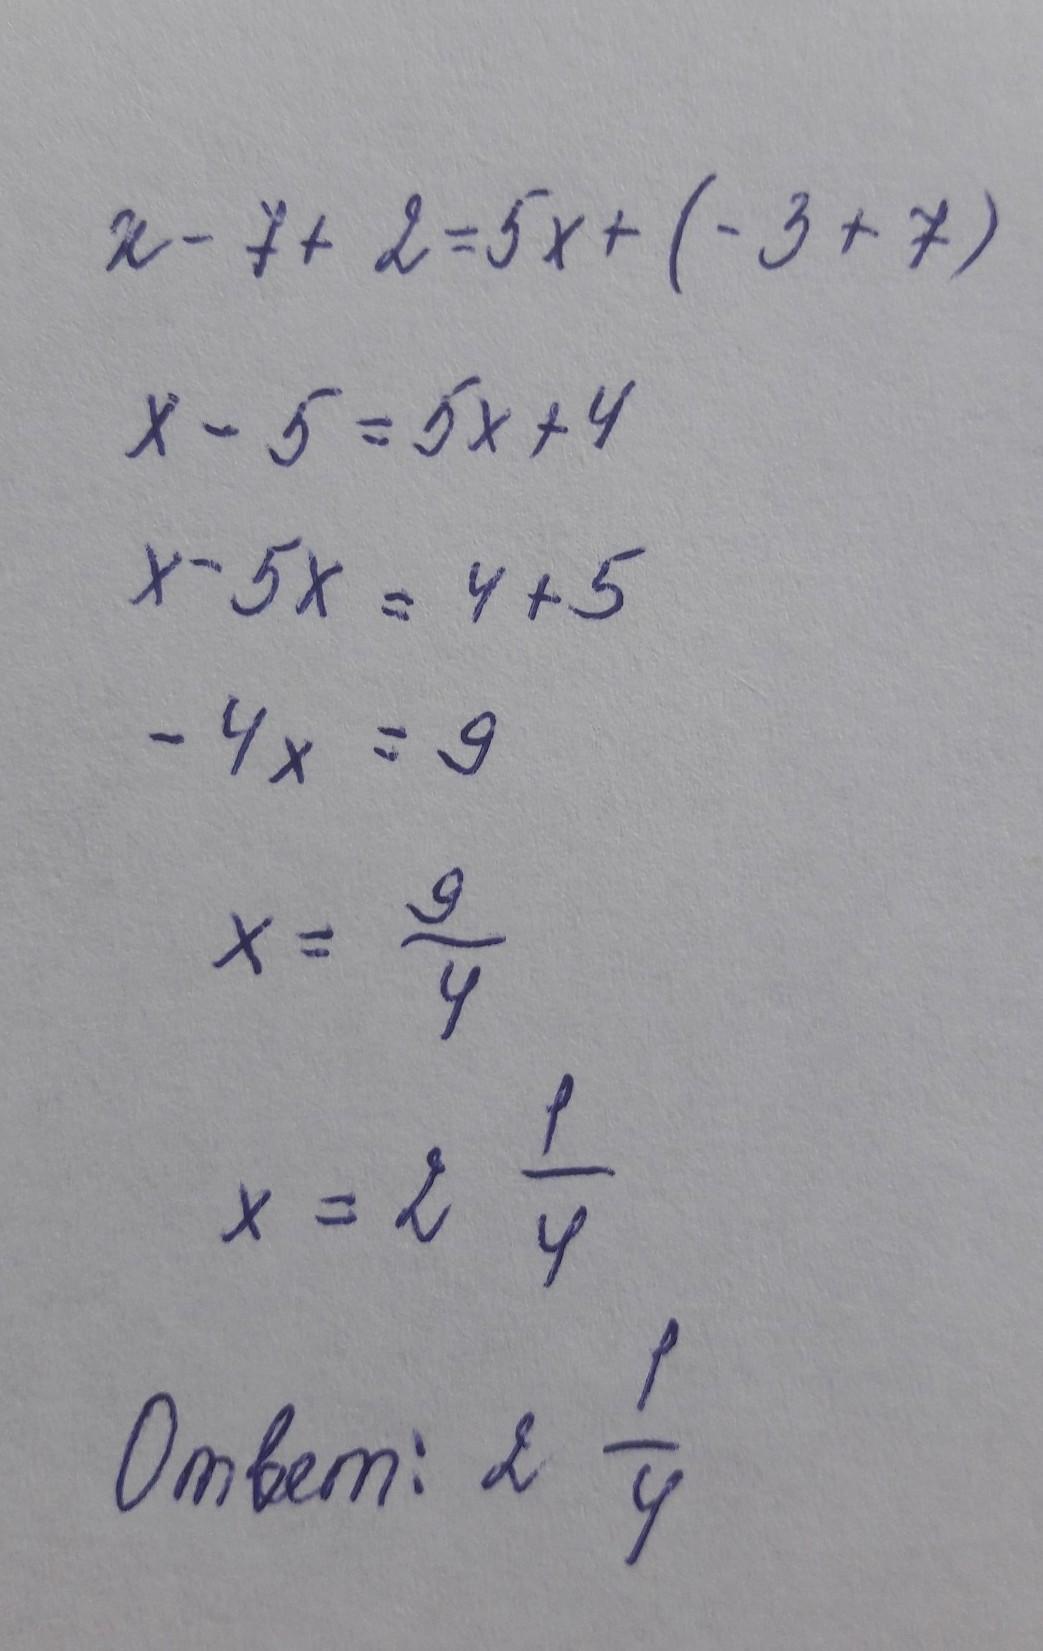 x - 7 + 2 = 5x + (- 3 + 7)
x - 5 = 5x + 4
x - 5x = 4 + 5
- 4x = 9
x = 9/4
x = 2 1/4
Ответ: 2 1/4